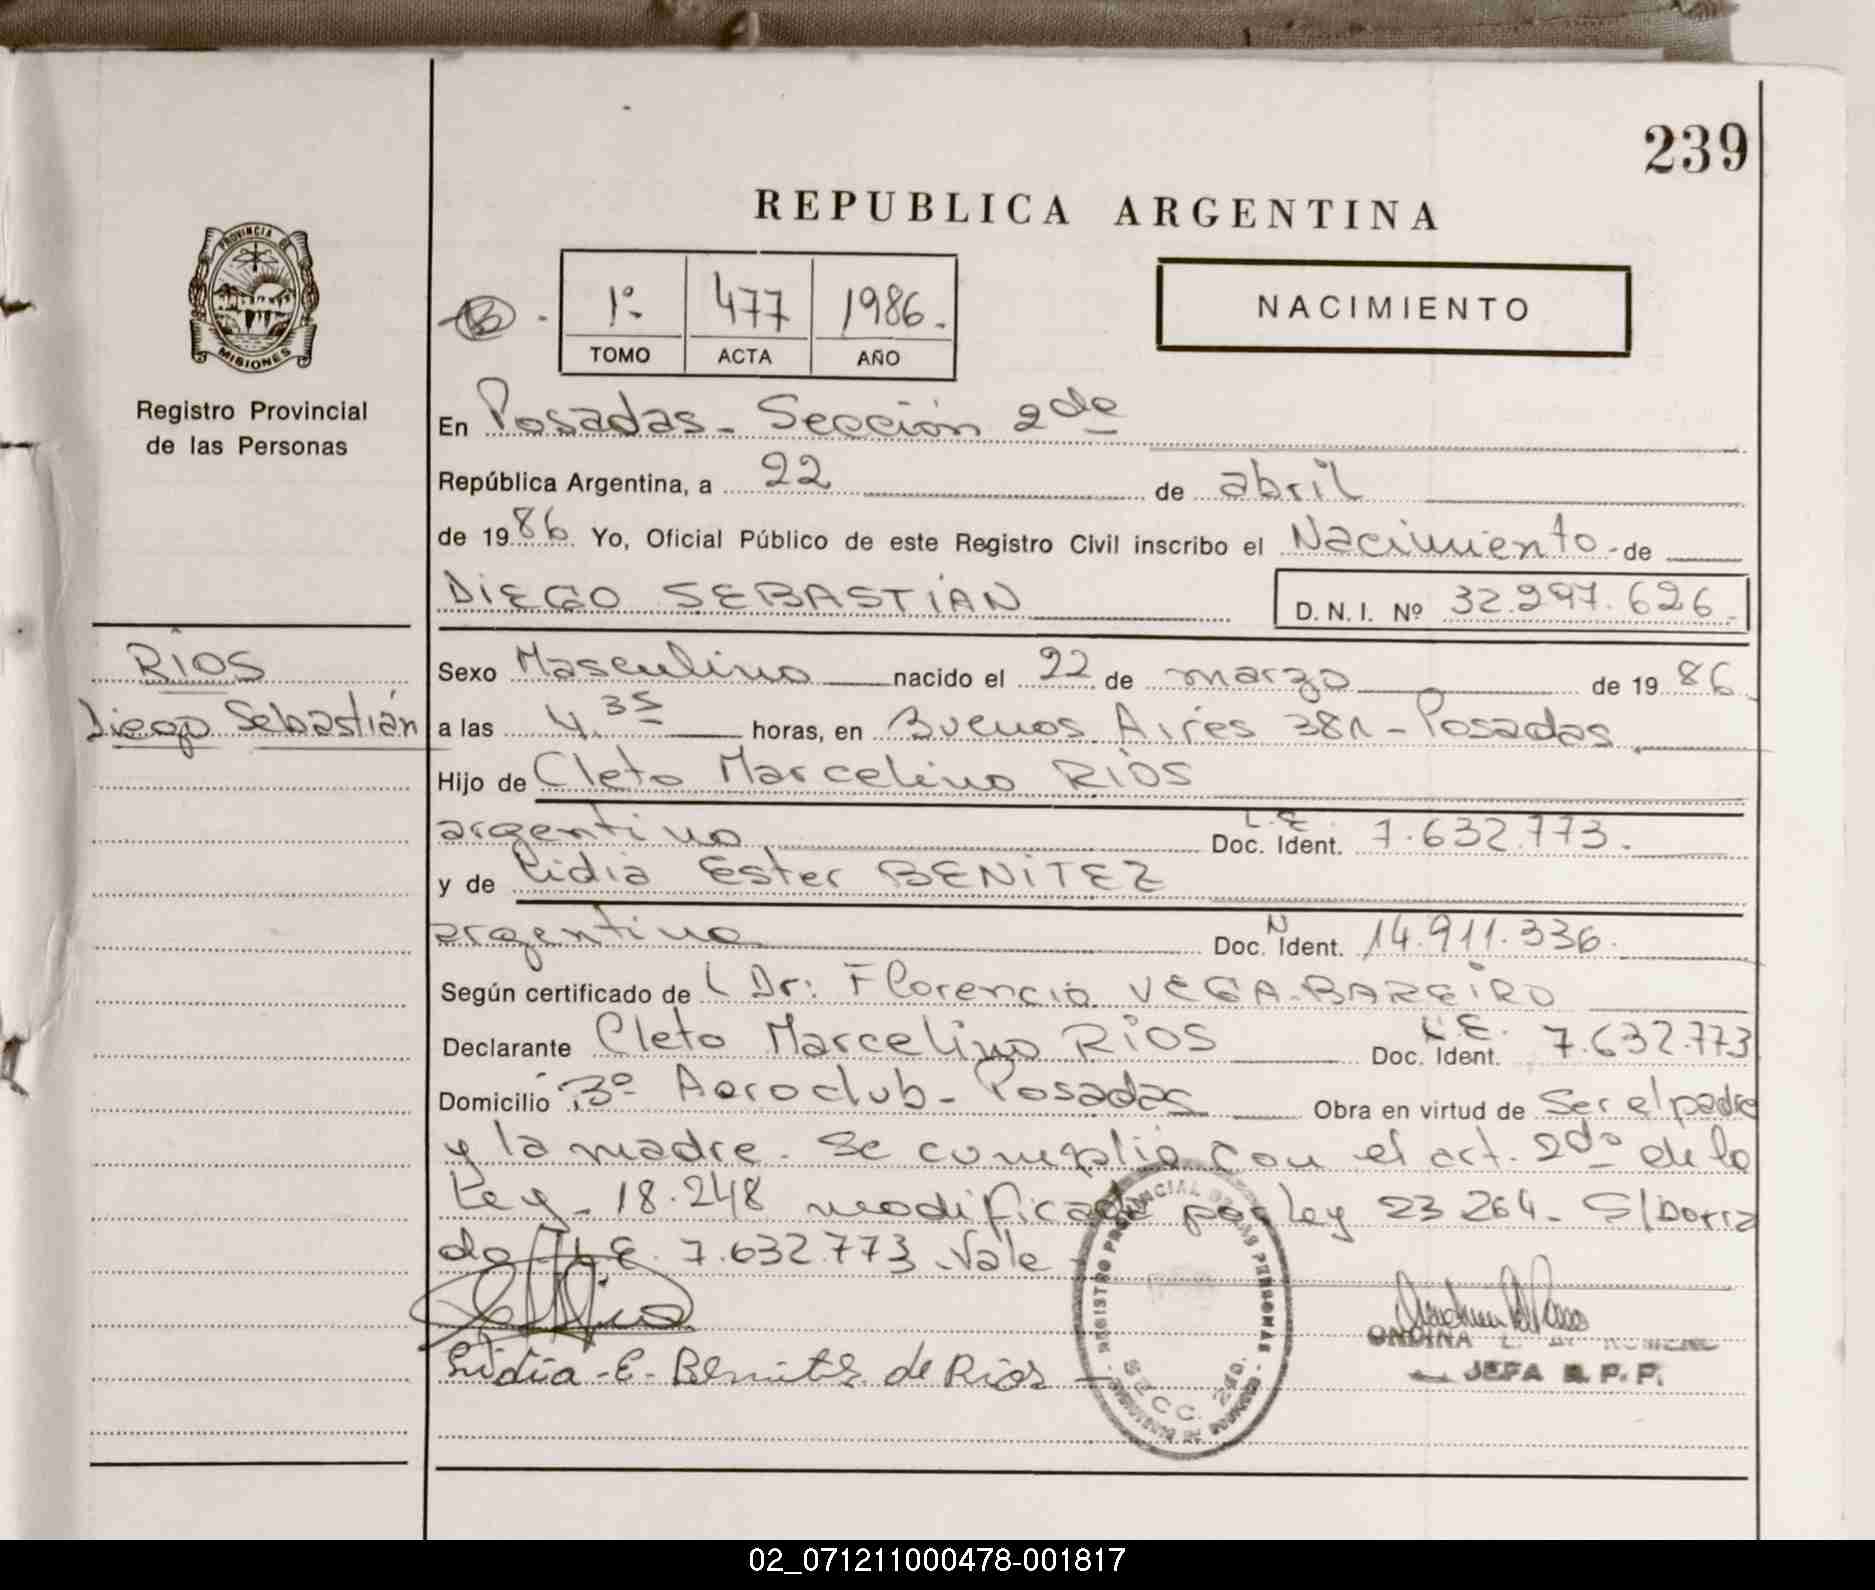 239
REPUBLICA ARGENTINA
PROVINCIA DE
MISIONES
Registro Provincial
de las Personas
B
1º 477 1986.
TOMO ACTA AÑO
NACIMIENTO
En Posadas - Sección 2da
República Argentina, a 22 de abril
de 1986 Yo, Oficial Público de este Registro Civil inscribo el Nacimiento - de
DiEGO SEBASTiAN D. N. I. Nº 32.297.626.
RiOS
Diego Sebastián
Sexo Masculino nacido el 22 de marzo de 1986
a las 4.35 horas, en Buenos Aires 381 - Posadas
Hijo de Cleto Marcelino RiOS
argentino L.E. Doc. Ident. 7.632.773.
y de Lidia Ester BENiTEZ
argentina Doc. N Ident. 14.911.336.
Según certificado de Dr: Florencio VEGA-BAREiRO
Declarante Cleto Marcelino RiOS L.E. Doc. Ident. 7.632.773
Domicilio Bº Aeroclub - Posadas Obra en virtud de Ser el padre
y la madre. Se cumplió con el art. 2do de la
Ley - 18.248 modificada por Ley 23264 - S/borra
do L.E. 7.632.773 - Vale
Lidia - E - Benitez de Rios
REGISTRO PROVINCIAL DE LAS PERSONAS
SECC. 2da.
JEFA R. P. P.
02_071211000478-001817